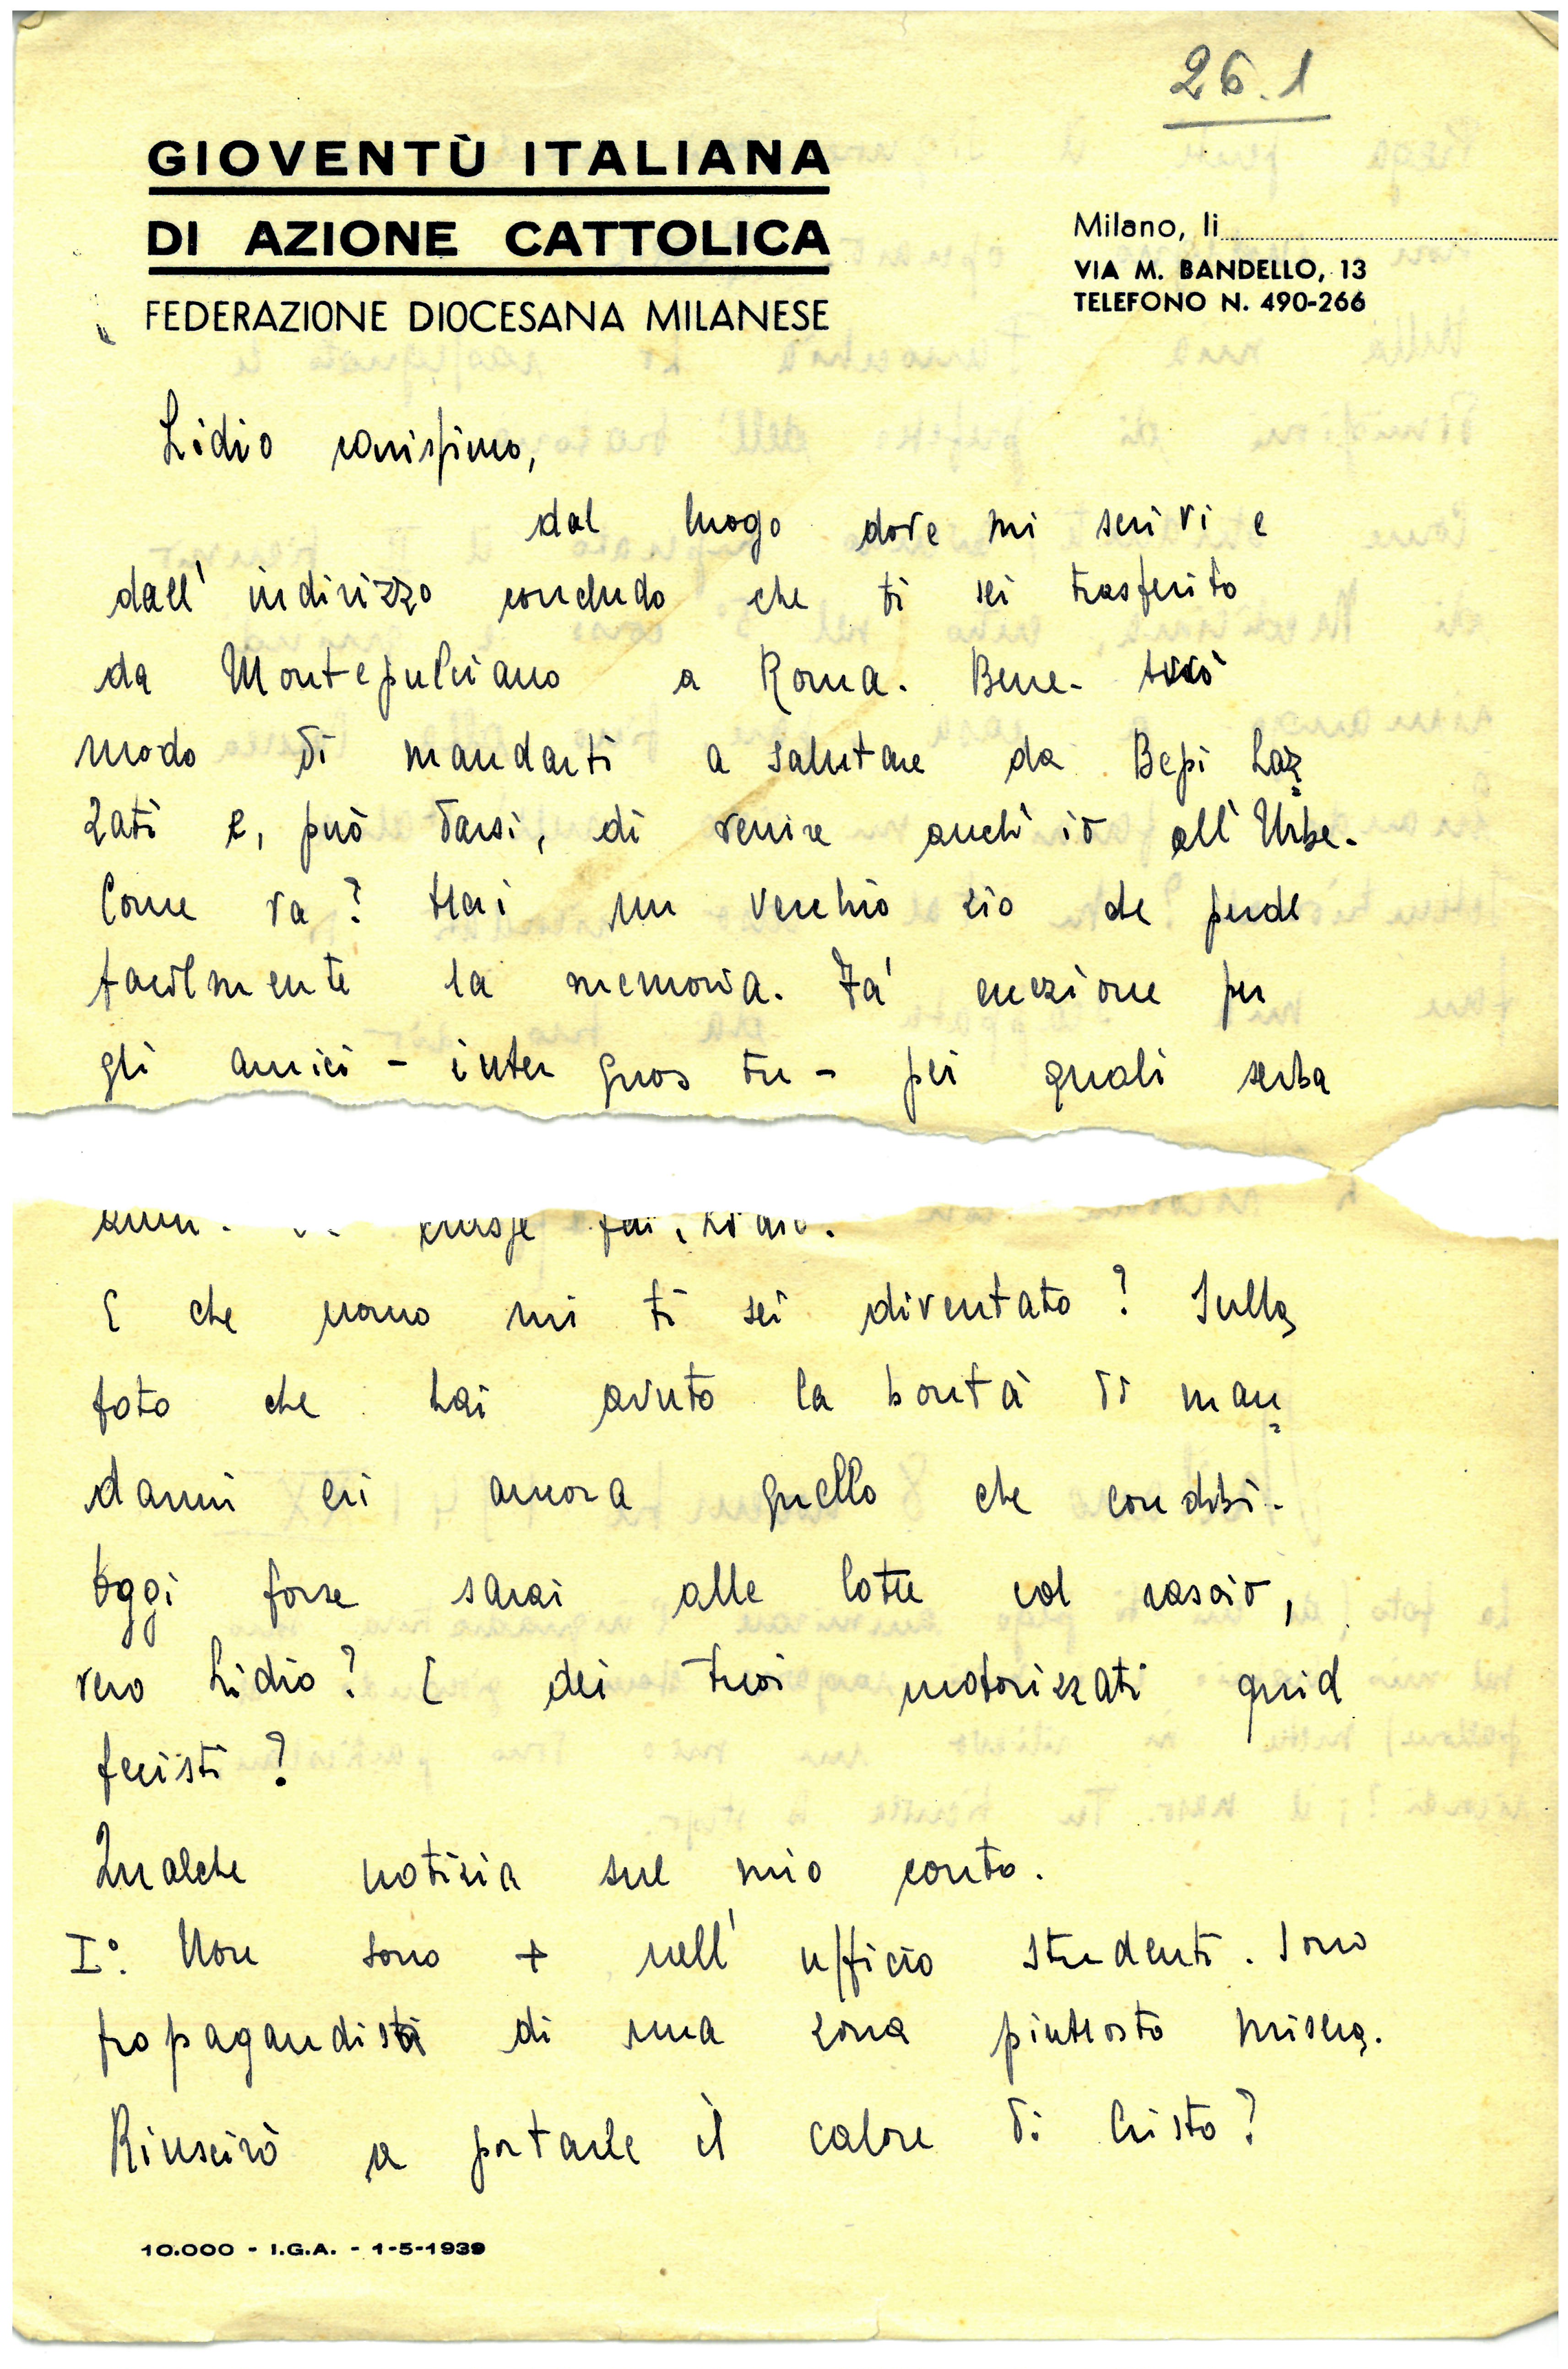 26.1
GIOVENTÙ ITALIANA
DI AZIONE CATTOLICA
FEDERAZIONE DIOCESANA MILANESE
Milano, li
VIA M. BANDELLO, 13
TELEFONO N. 490-266
Lidio carissimo,
dal luogo dove mi scrivi e
dall' indirizzo concludo che ti sei trasferito
da Montepulciano a Roma. Bene-
modo di mandarti a salutare da Bepi Laz
zati e, può darsi, di venire anch' io all' Urbe.
Come va? Hai un vecchio zio che perde
facilmente la memoria. Fa' eccezione per
gli amici - inter quos tu - pei quali serba
classe fai,
E che uomo mi ti sei diventato? Sulla
foto che hai avuto la bontà di man
darmi eri ancora quello che conobbi.
Oggi forse sarai alle lotte col rasoio,
vero Lidio? E dei tuoi motorizzati quid
fecisti?
Qualche notizia sul mio conto.
I°: Non sono + nell' ufficio studenti. Sono
propagandista di una zona piuttosto misera.
Riuscirò a portarle il calore di Cristo?
10.000 - I.G.A. - 1-5-1939